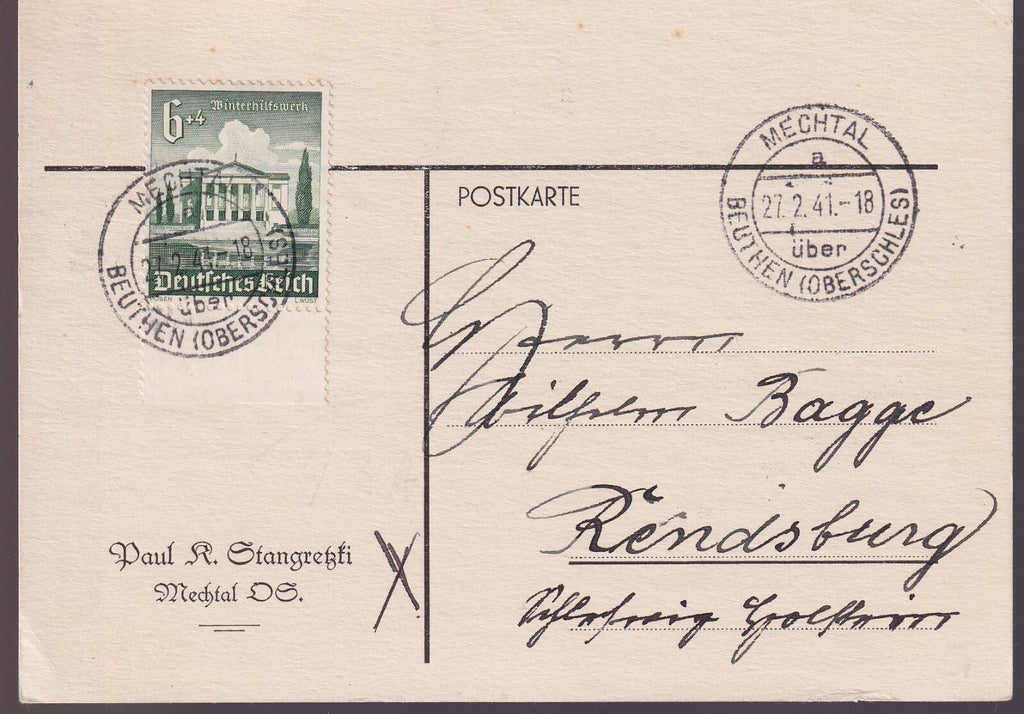 6+4 Winterhilfswerk
Deutsches Reich
POSEN L.WÜST
MECHTAL
a
27.2.41.-18
über
BEUTHEN (OBERSCHLES)
MECHTAL
a
27.2.41.-18
über
BEUTHEN (OBERSCHLES)
POSTKARTE
Herrn
Wilhelm Bagge
Rendsburg
Schleswig Holstein
Paul K. Stangretzki
Mechtal OS.